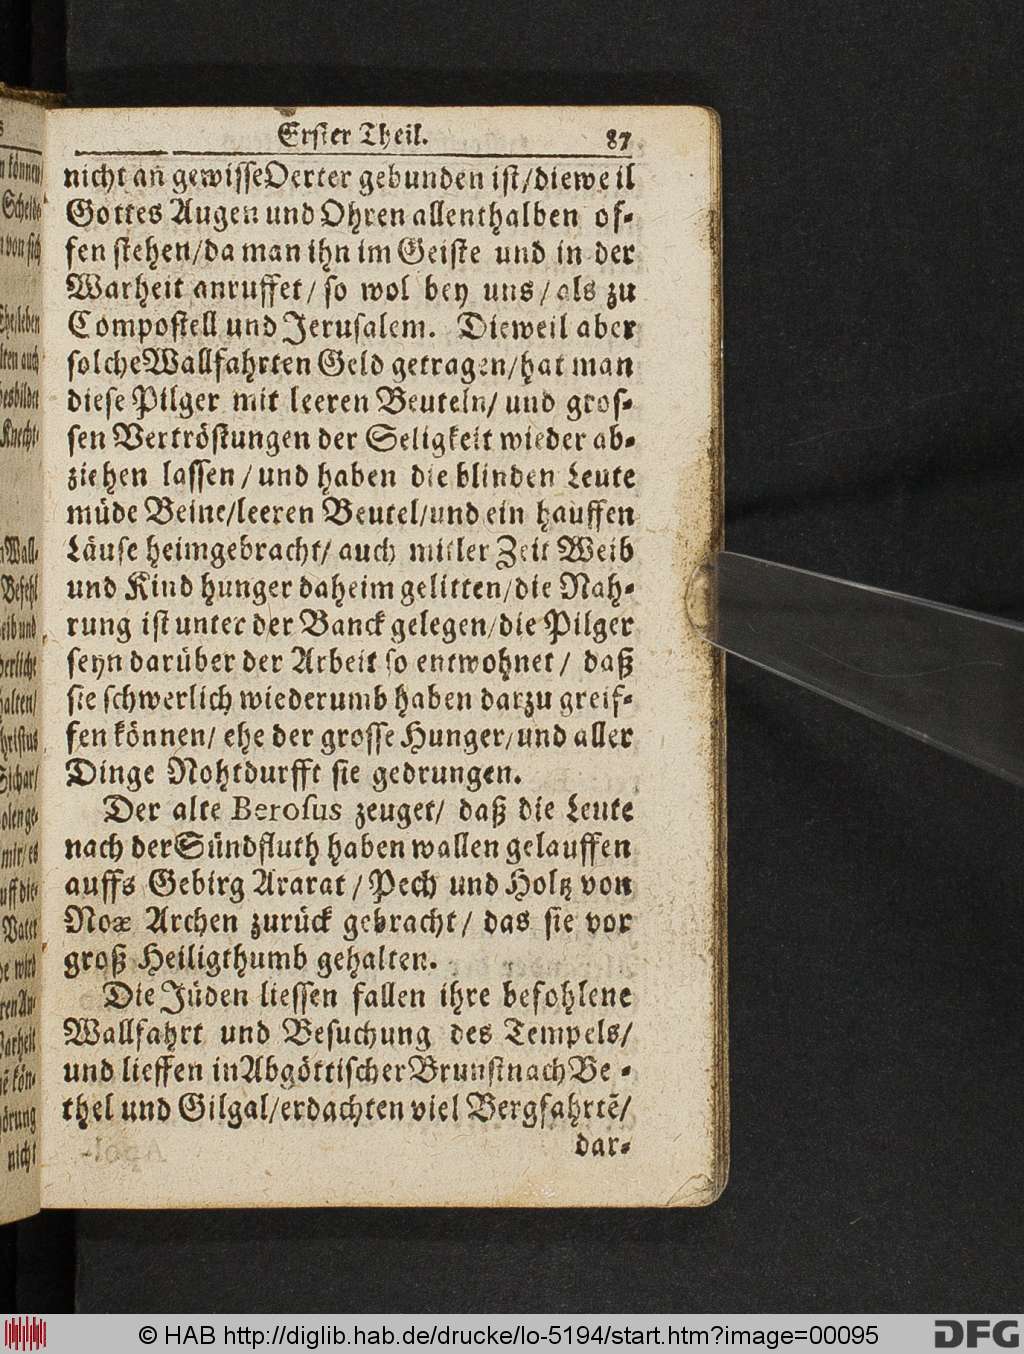 Erster Theil. 87
nicht an gewisse Oerter gebunden ist/dieweil
Gottes Augen und Ohren allenthalben of-
fen stehen/da man ihn im Geiste und in der
Warheit anruffet/ so wol bey uns/ als zu
Compostell und Jerusalem. Dieweil aber
solche Wallfahrten Geld getragen/hat man
diese Pilger mit leeren Beuteln/ und gros-
sen Vertröstungen der Seligkeit wieder ab-
ziehen lassen/ und haben die blinden Leute
müde Beine/leeren Beutel/und ein hauffen
Läuse heimgebracht/ auch mitler Zeit Weib
und Kind hunger daheim gelitten/die Nah-
rung ist unter der Banck gelegen/die Pilger
seyn darüber der Arbeit so entwohnet/ daß
sie schwerlich wiederumb haben darzu greif-
fen können/ ehe der grosse Hunger/und aller
Dinge Nohtdurfft sie gedrungen.
Der alte Berosus zeuget/ daß die Leute
nach der Sündfluth haben wallen gelauffen
auffs Gebirg Ararat/Pech und Holtz von
Noæ Archen zurück gebracht/ das sie vor
groß Heiligthumb gehalten.
Die Jüden liessen fallen ihre befohlene
Wallfahrt und Besuchung des Tempels/
und lieffen in Abgöttischer Brunst nach Be-
thel und Gilgal/erdachten viel Bergfahrtē/
dar-
© HAB http://diglib.hab.de/drucke/lo-5194/start.htm?image=00095
DFG